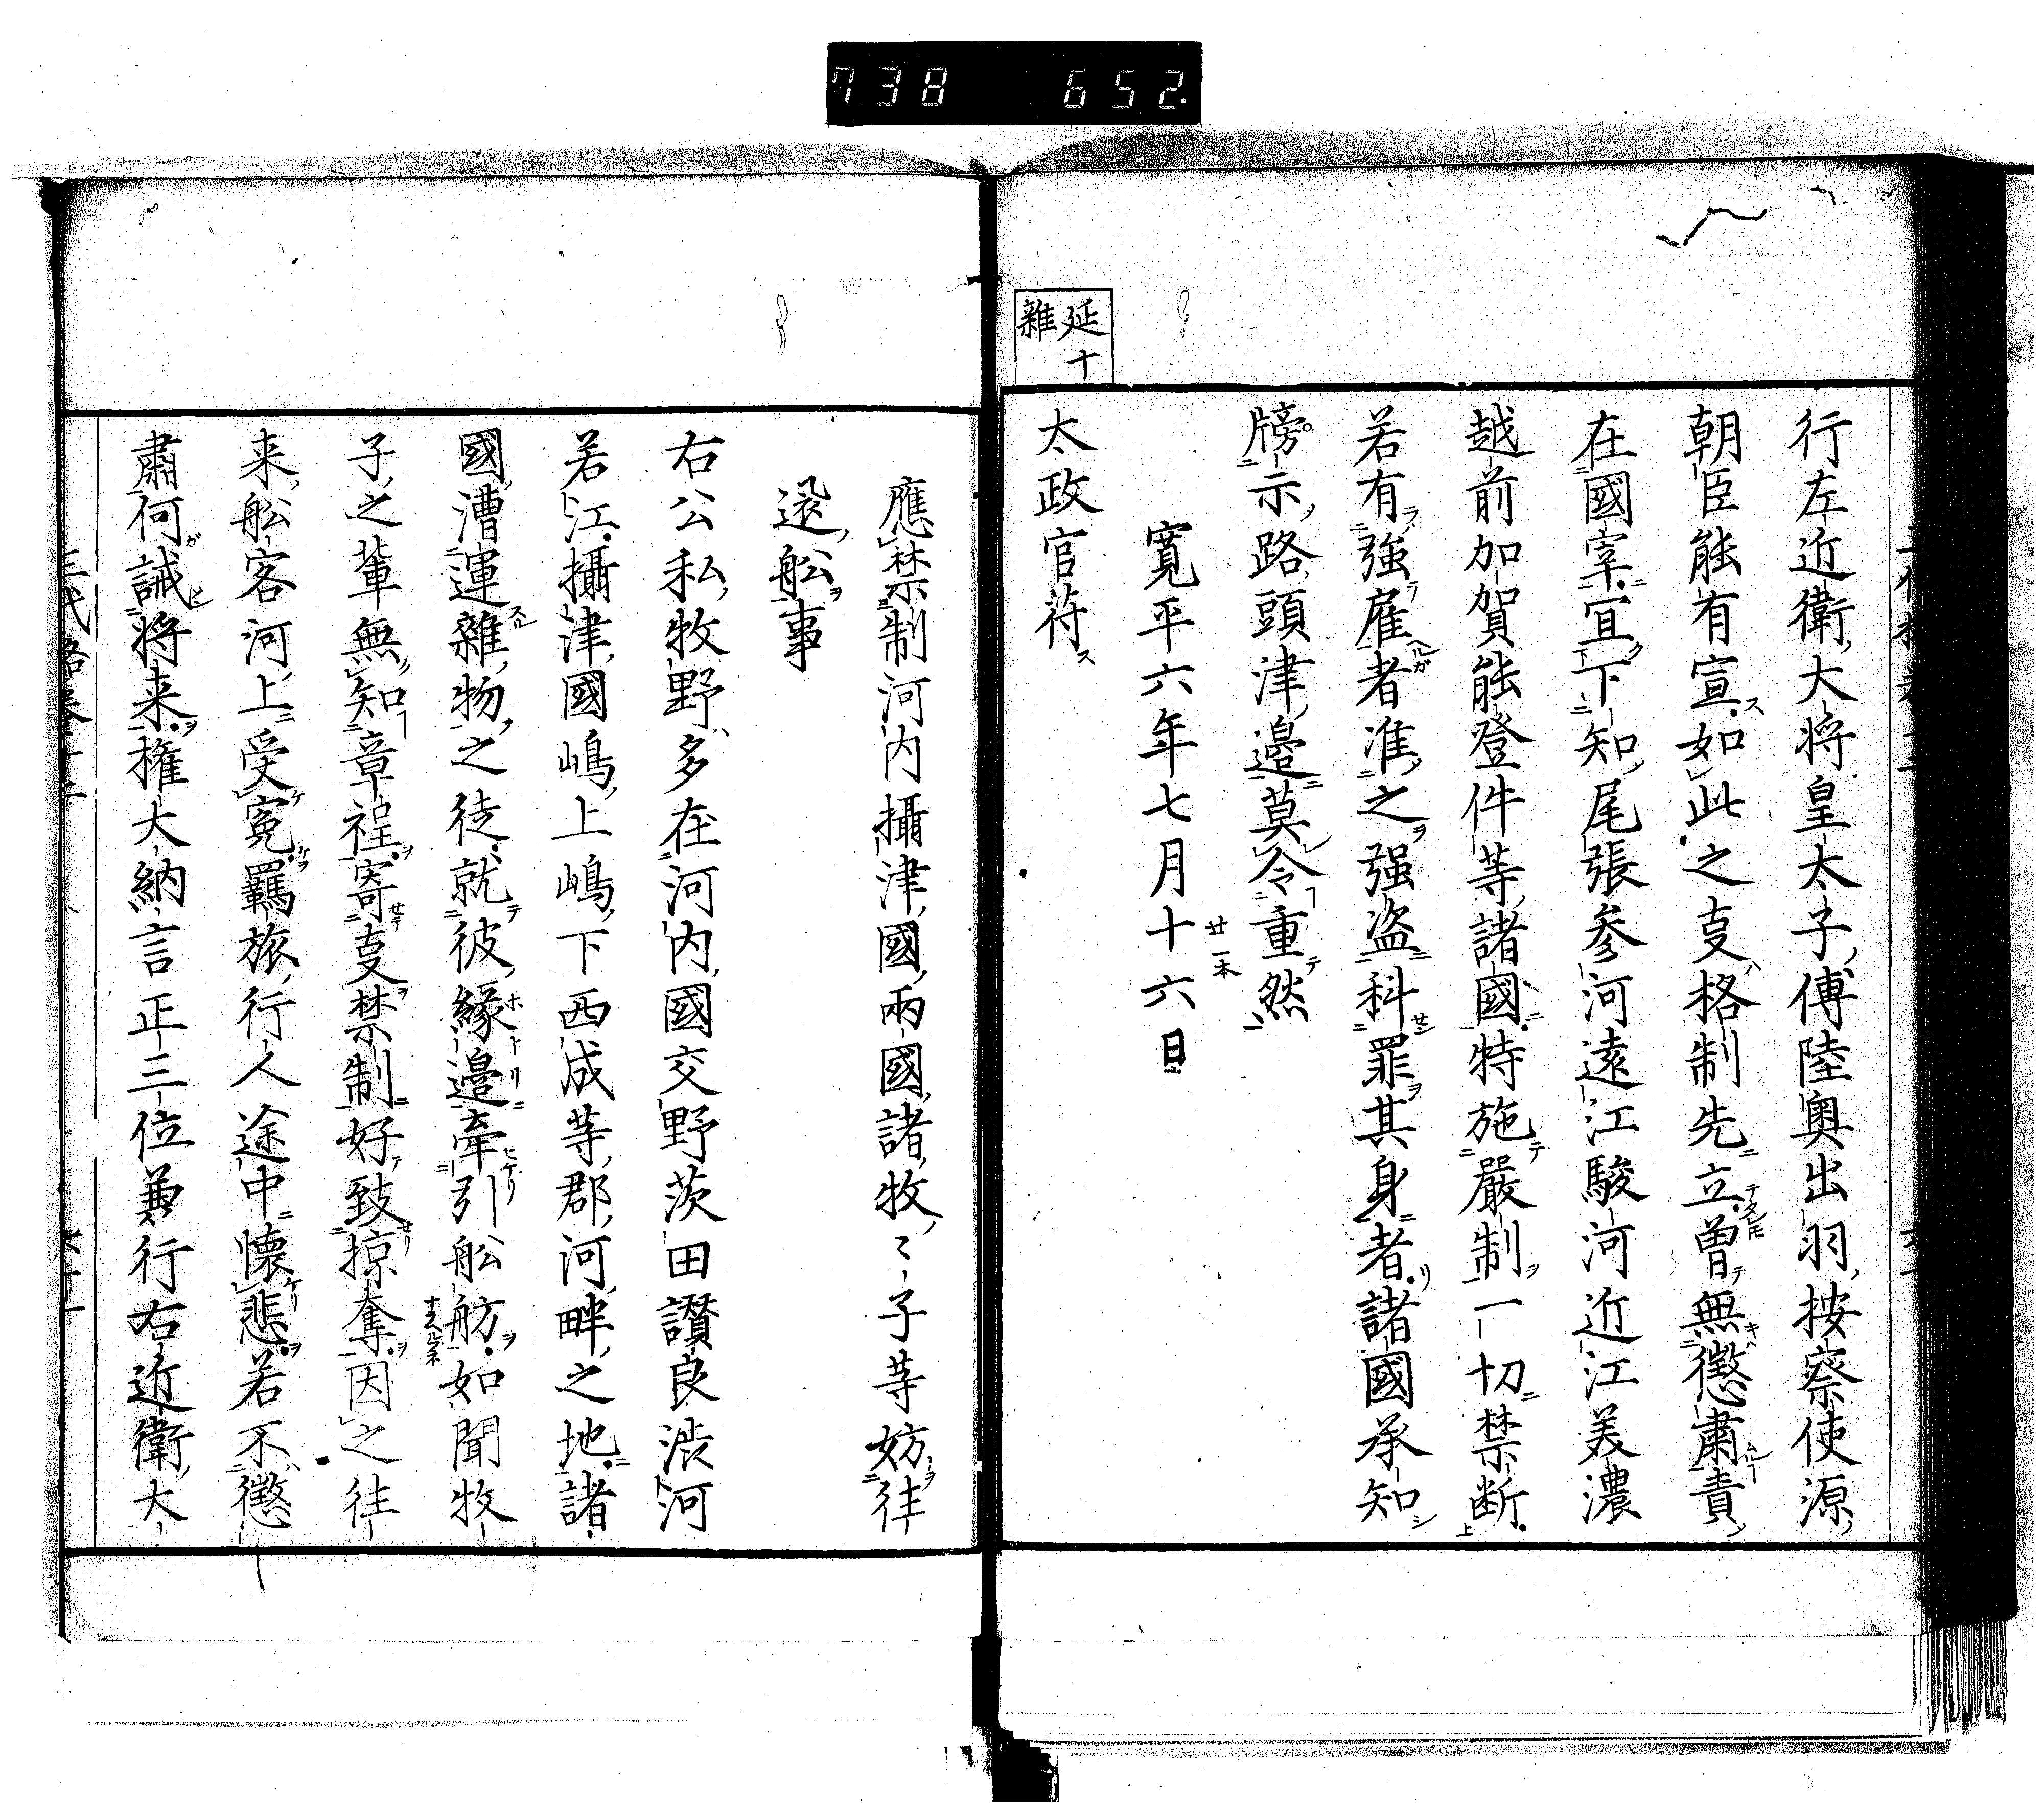 738 652.
行左近衛大将皇太子傅陸奥出羽按察使源
朝臣能有宣如此之叓格制先立曽無懲肅責
在國宰冝下知尾張参河遠江駿河近江美濃
越前加賀能登件等諸國特施嚴制一切禁断
若有強雇者准之强盗科罪其身者諸國承知
牓示路頭津邉莫令重然
寛平六年七月十六日
廿一本
延十
雜
太政官苻
應禁制河内攝津國兩國諸牧〻子等妨往
還舩事
右公私牧野多在河内國交野茨田讃良渋河
若江攝津國嶋上嶋下西成等郡河畔之地諸
國漕運雜物之徒就彼縁邉牽引舩舫如聞牧
子之輩無知章程寄叓禁制好致掠奪因之往
来舩客河上受寃羈旅行人途中懐悲若不懲
肅何誡将来権大納言正三位兼行右近衛大